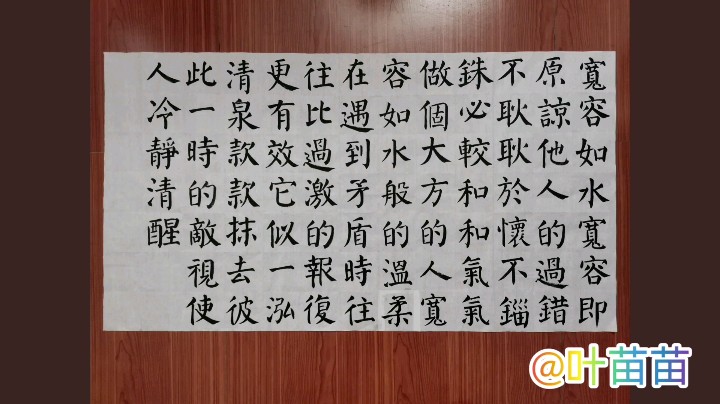 寬容如水寬容即
原諒他人的過錯
不耿耿於懷不錙
銖必較和和氣氣
做個大方的人寬
容如水般的溫柔
在遇到矛盾時往
往比過激的報復
更有效它似一泓
清泉款款抹去彼
此一時的敵視使
人冷靜清醒
@叶苗苗